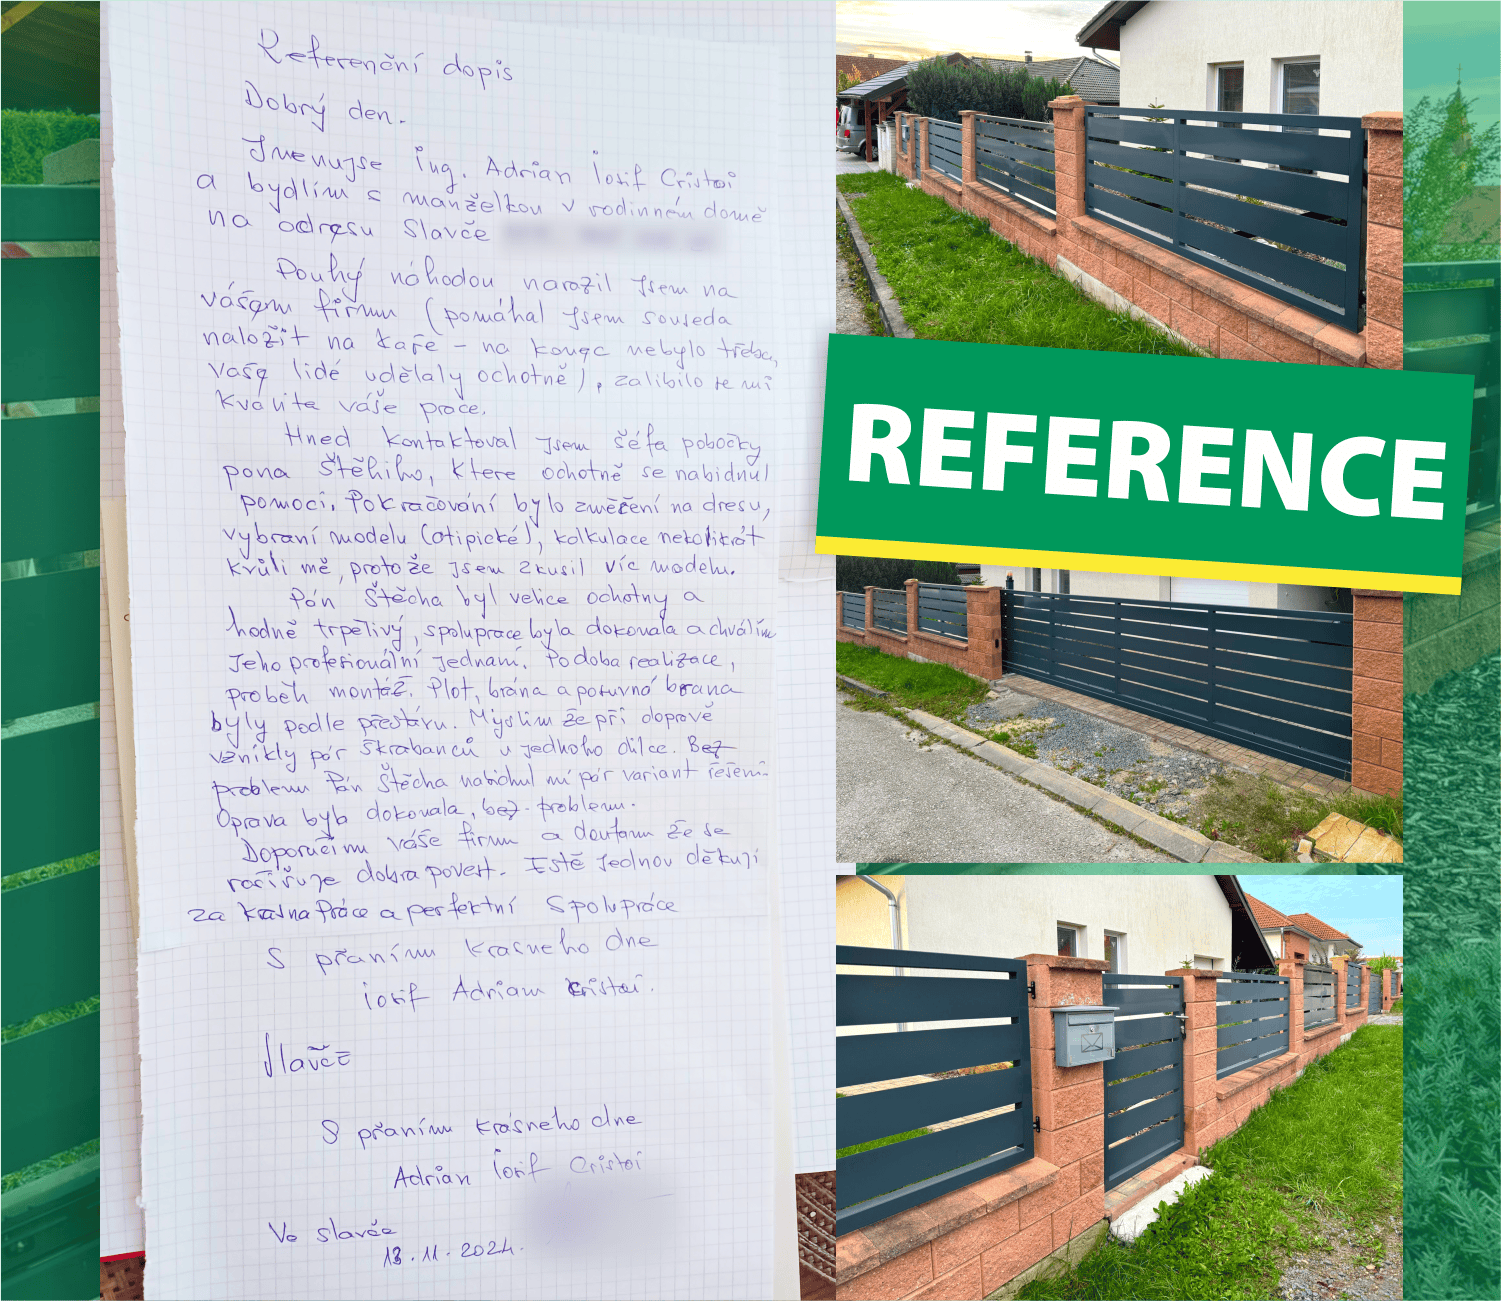 Referenční dopis
Dobrý den.
Jmenujse ing. Adrián Iosif Cristoi
a bydlím s manželkou v rodinném domě
na adresu Slavče
Pouhý náhodou narazil jsem na
vášem firmu (pomáhal jsem souseda
naložit na kaře – na konec nebylo třeba,
vaše lidé udělaly ochotně), zalibilo se mi
kvalita váše prace.
Hned kontaktoval jsem šéfa pobočky
pona Štěhiho, ktere ochotně se nabidnul
pomoci. Pokračování bylo změření na dresu,
vybraní modelu (atipické), kolkulace nekolikrát
kvůli mě, proto že jsem zkusil víc modelu.
Pán Štěcha byl velice ochotny a
hodně trpelivý, spoluprace byla dokonala a chválím
jeho profesionální jednaní. Podoba realizace,
proběh montáž. Plot, brána a posuvná brana
byly podle přestávu. Myslím že při dopravě
vznikly pár škrabanců u jednoho dílce. Bez
problemu Pán Štěcha nabidnul mi pár variant řešení.
Oprava byla dokonala, bez problemu.
Doporučimu váše firmu a doufamu že se
rošiřuje dobra povest. Estě jednou děkuji
za krásna práce a perfektní spolupráce
S přanímu krasneho dne
Iosif Adriam Cristoi.
Slavče
S přanímu krásneho dne
Adrián Iosif Cristoi
Ve slavče
13.11.2024.
REFERENCE